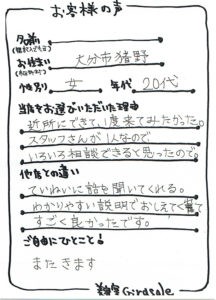 お客様の声
名前
お住まい 大分市猪野
性別 女 年代 20代
当店をお選びいただいた理由
近所にできて、1度来てみたかった。
スタッフさんが1人なので
いろいろ相談できると思ったので。
他店との違い
ていねいに話を聞いてくれる。
わかりやすい説明でおしえてくれて
すごく良かったです。
ご自由にひとこと!
またきます